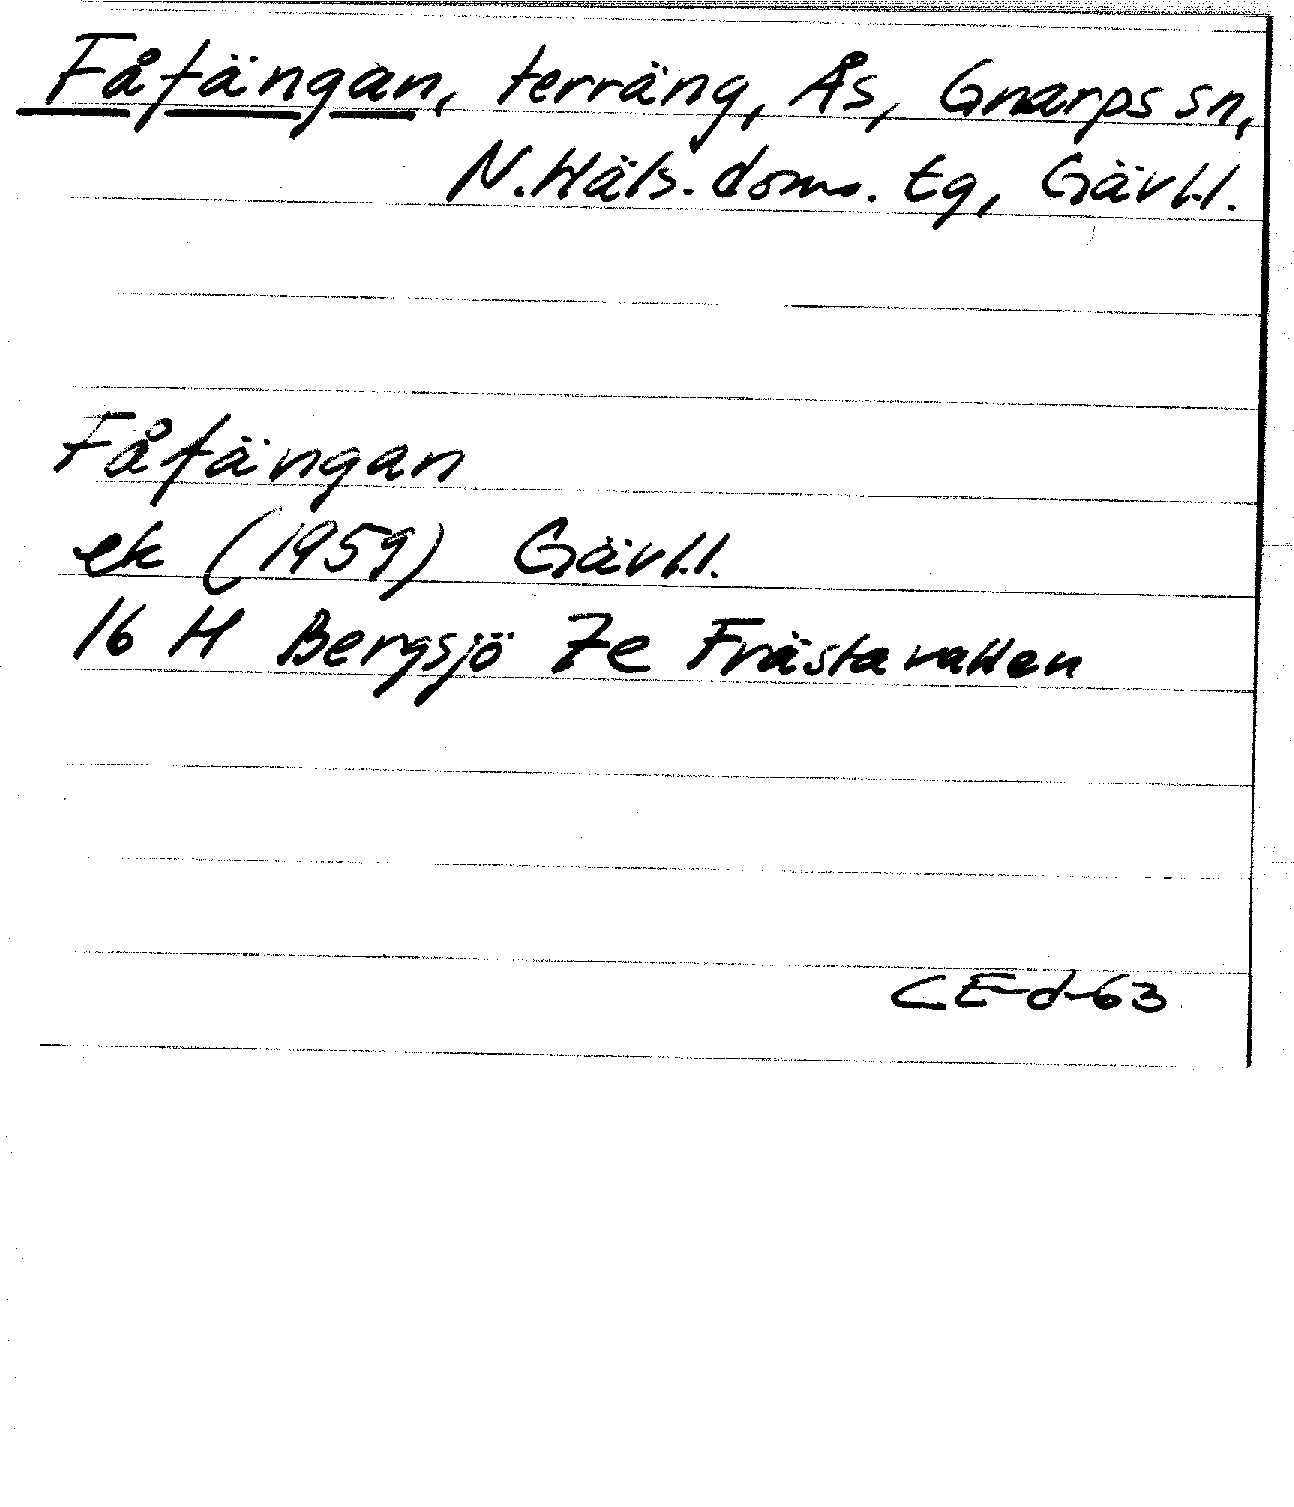 Fåfängan, terräng, Ås, Gnarps sn,
N. Häls. doms. tg, Gävl.l.
Fåfängan
ek (1959) Gävl.l.
16 H Bergsjö 7e Frästavallen
CE-d-63